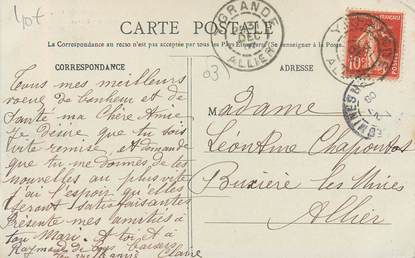 40f
CARTE POSTALE
La Correspondance au recto n'est pas acceptée par tous les Pays Étrangers (Se renseigner à la Poste.)
YGRANDE
31
DEC
ALLIER
03
10
CORRESPONDANCE
ADRESSE
Tous mes meilleurs
voeux de bonheur et de
Santé ma Chère Amie
Je Désire que tu sois
vite remise, et demande
que tu me donnes de tes
nouvelles au plus vite
j'ai l'espoir qu'elles
seront satisfaisantes
Présente mes amitiés à
ton Mari. Et toi et à
Raymond de bons baisers
Claire
Madame
Léontine Chaponton
Buxière les Mines
Allier